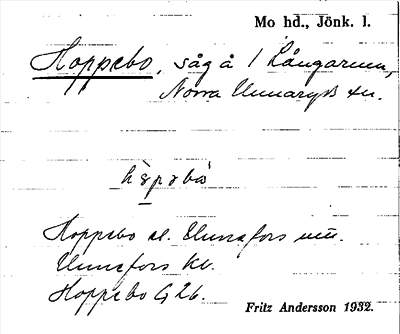 Mo hd., Jönk. l.
Hoppebo, såg å 1 Långarum,
Norra Unnaryds sn.
Hoppebo el. Unnefors
Unnefors kv.
Hoppebo G 26.
Fritz Andersson 1932.